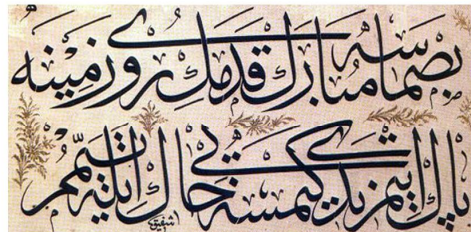 بصماسه مبارك قدمك روى زمينه
پاك ايتمزدى كيمسه يى خاك ايله تيمم
شفيق